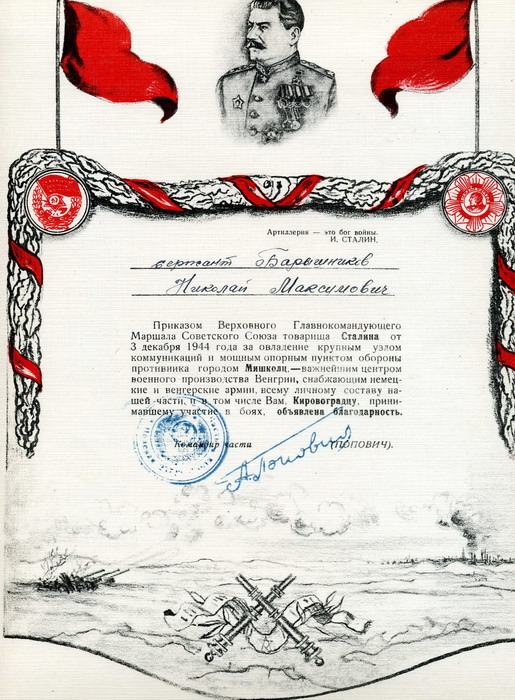 Артиллерия — это бог войны.
И. СТАЛИН.
сержант Барышников
Николай Максимович
Приказом Верховного Главнокомандующего
Маршала Советского Союза товарища Сталина от
3 декабря 1944 года за овладение крупным узлом
коммуникаций и мощным опорным пунктом обороны
противника городом Мишколц,—важнейшим центром
военного производства Венгрии, снабжающим немец-
кие и венгерские армии, всему личному составу на-
шей части, и в том числе Вам, Кировоградцу, прини-
мавшему участие в боях, объявлена благодарность.
Командир части (ПОПОВИЧ).
А.Попович